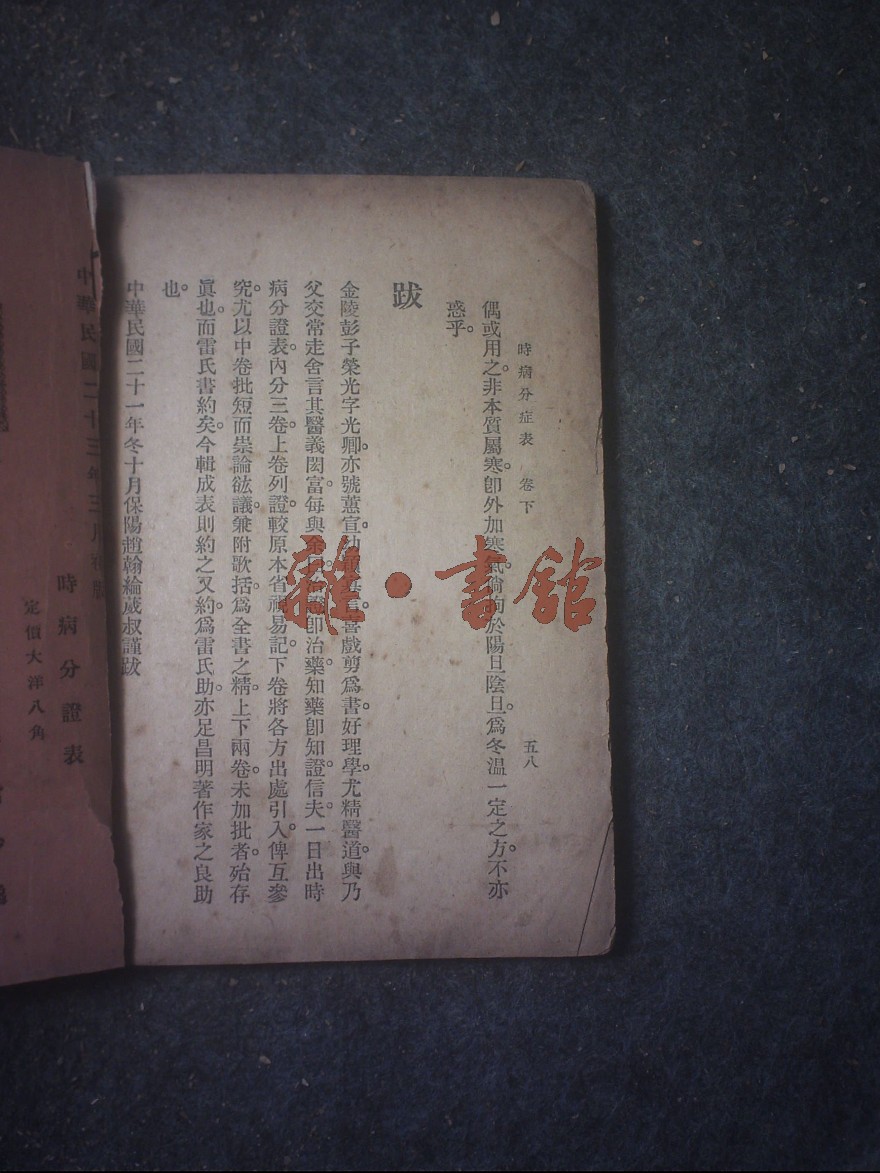 時病分症表 卷下 五八
偶或用之。非本質屬寒。卽外加寒氣。倘拘於陽旦陰旦。爲冬溫一定之方。不亦
惑乎。
跋
金陵彭子榮光字光卿。亦號蕙宣。幼 喜戲剪爲書。好理學。尤精醫道。與乃
父交常走舍言其醫義閎富。每與余 治 卽治藥。知藥卽知證。信夫一日出時
病分證表。內分三卷。上卷列證。較原本省視易記。下卷將各方出處引入。俾互參
究。尤以中卷批短而崇論欱議。兼附歌括。爲全書之精。上下兩卷。未加批者。殆存
眞也。而雷氏書約矣。今輯成表則約之又約。爲雷氏助。亦足昌明著作家之良助
也。
中華民國二十一年冬十月保陽趙翰綸葳叔謹跋
中華民國二十三年三月 版
時病分證表
定價大洋八角
雜·書館